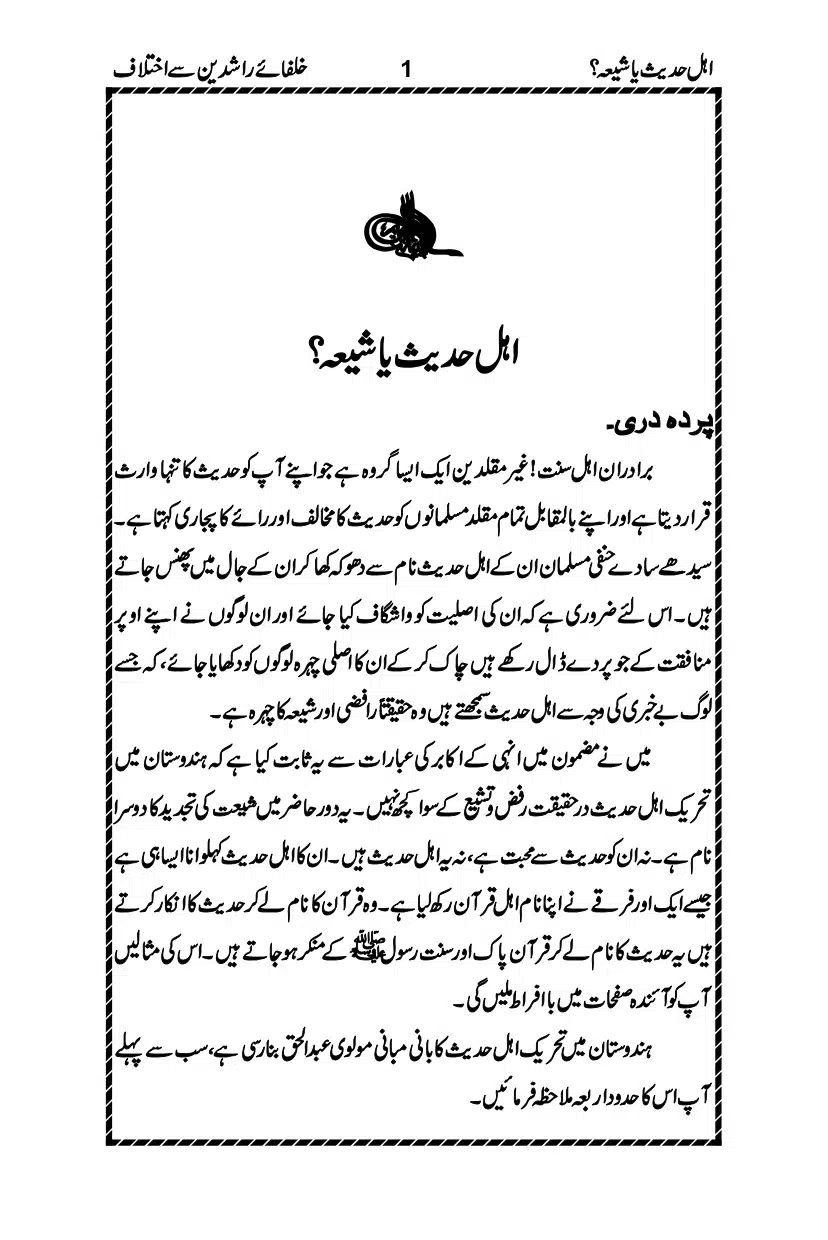 اہل حدیث یا شیعہ؟ 1 خلفائے راشدین سے اختلاف
اہل حدیث یا شیعہ؟
پردہ دری۔
برادران اہل سنت! غیر مقلدین ایک ایسا گروہ ہے جو اپنے آپ کو حدیث کا تنہا وارث
قرار دیتا ہے اور اپنے بالمقابل تمام مقلد مسلمانوں کو حدیث کا مخالف اور رائے کا پجاری کہتا ہے۔
سیدھے سادے حنفی مسلمان ان کے اہل حدیث نام سے دھوکہ کھا کر ان کے جال میں پھنس جاتے
ہیں۔ اس لئے ضروری ہے کہ ان کی اصلیت کو واشگاف کیا جائے اور ان لوگوں نے اپنے اوپر
منافقت کے جو پردے ڈال رکھے ہیں چاک کر کے ان کا اصلی چہرہ لوگوں کو دکھایا جائے، کہ جسے
لوگ بے خبری کی وجہ سے اہل حدیث سمجھتے ہیں وہ حقیقتاً رافضی اور شیعہ کا چہرہ ہے۔
میں نے مضمون میں انہی کے اکابر کی عبارات سے یہ ثابت کیا ہے کہ ہندوستان میں
تحریک اہل حدیث در حقیقت رفض و تشیع کے سوا کچھ نہیں۔ یہ دور حاضر میں شیعت کی تجدید کا دوسرا
نام ہے۔ نہ ان کو حدیث سے محبت ہے، نہ یہ اہل حدیث ہیں۔ ان کا اہل حدیث کہلوانا ایسا ہی ہے
جیسے ایک اور فرقے نے اپنا نام اہل قرآن رکھ لیا ہے۔ وہ قرآن کا نام لے کر حدیث کا انکار کرتے
ہیں یہ حدیث کا نام لے کر قرآن پاک اور سنت رسول ﷺ کے منکر ہو جاتے ہیں۔ اس کی مثالیں
آپ کو آئندہ صفحات میں با افراط ملیں گی۔
ہندوستان میں تحریک اہل حدیث کا بانی مبانی مولوی عبدالحق بنارسی ہے، سب سے پہلے
آپ اس کا حدود اربعہ ملاحظہ فرمائیں۔